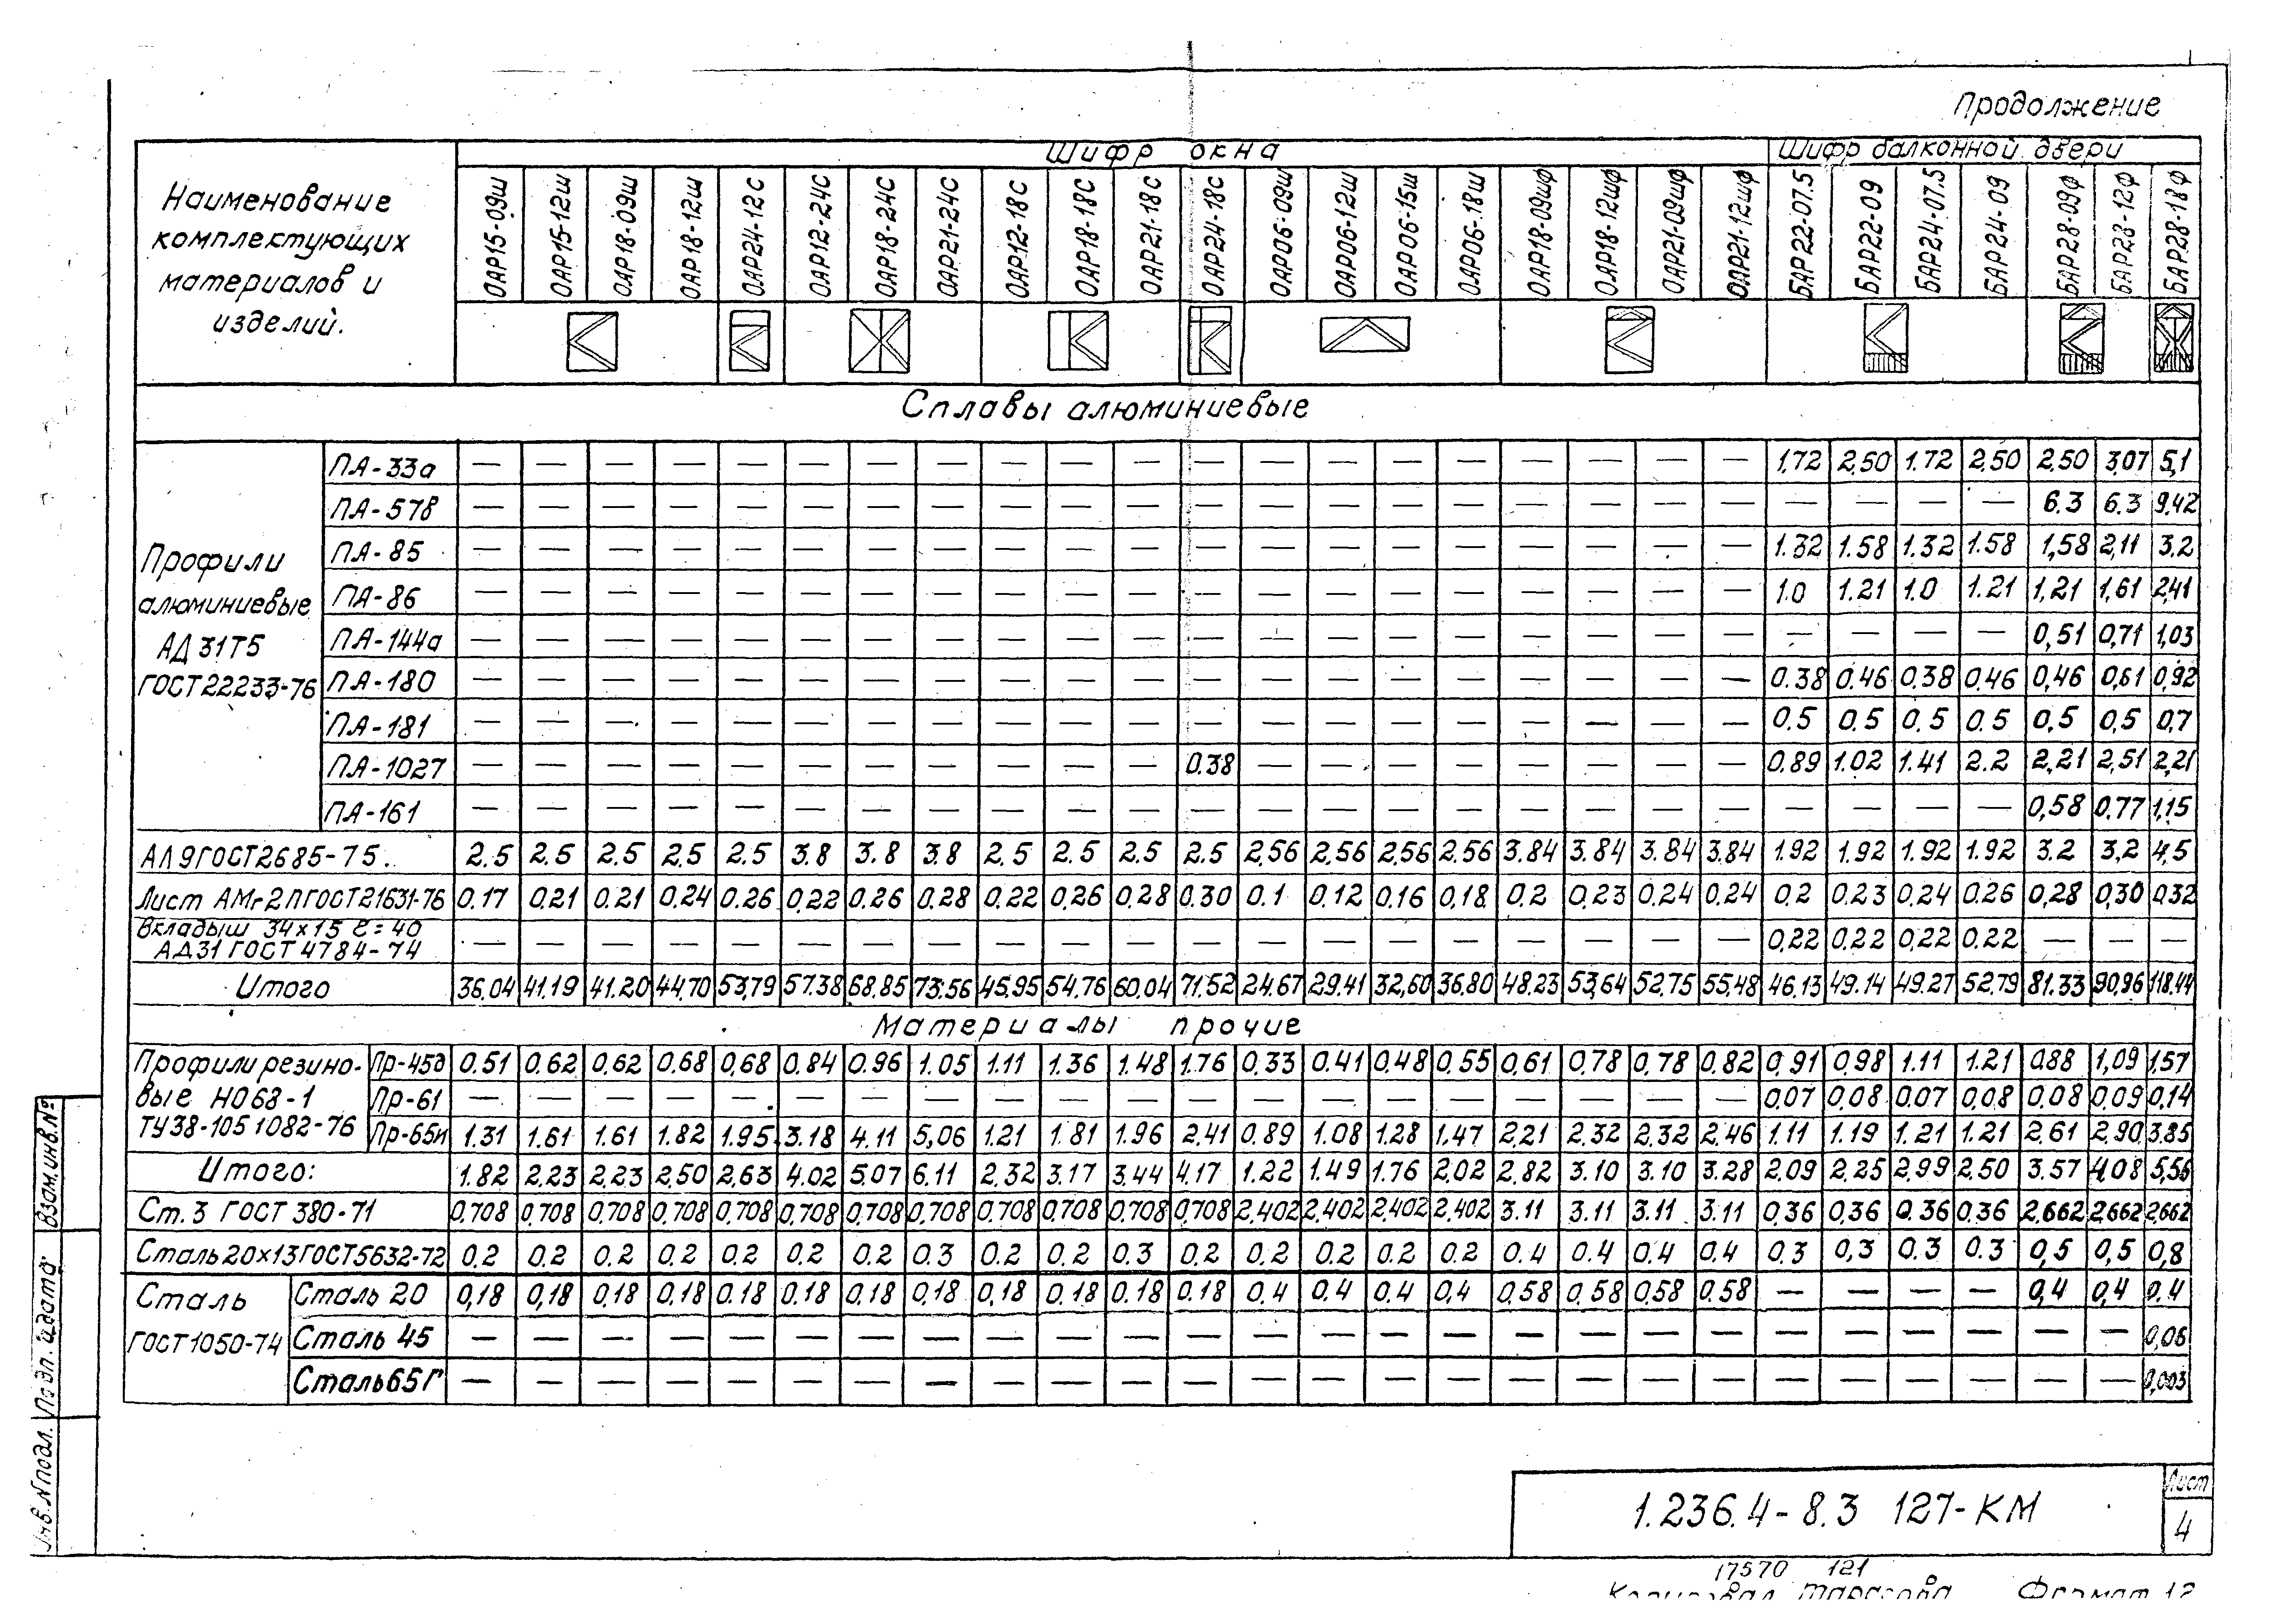 Продолжение
Наименование комплектующих материалов и изделий.
Шифр окна
Шифр балконной двери
ОАР15-09ш ОАР15-12ш ОАР18-09ш ОАР18-12ш ОАР24-12С ОАР12-24С ОАР18-24С ОАР21-24С ОАР12-18С ОАР18-18С ОАР21-18С ОАР24-18С ОАР06-09ш ОАР06-12ш ОАР06-15ш ОАР06-18ш ОАР18-09шф ОАР18-12шф ОАР21-09шф ОАР21-12шф БАР22-07.5 БАР22-09 БАР24-07.5 БАР24-09 БАР28-09ф БАР28-12ф БАР28-18ф
Сплавы алюминиевые
Профили алюминиевые АД31Т5 ГОСТ22233-76
ПА-33а — — — — — — — — — — — — — — — — — — — — 1,72 2,50 1.72 2,50 2,50 3,07 5,1
ПА-578 — — — — — — — — — — — — — — — — — — — — — — — — 6.3 6.3 9,42
ПА-85 — — — — — — — — — — — — — — — — — — — — 1.32 1.58 1.32 1.58 1,58 2,11 3,2
ПА-86 — — — — — — — — — — — — — — — — — — — — 1.0 1.21 1.0 1.21 1,21 1,61 2,41
ПА-144а — — — — — — — — — — — — — — — — — — — — — — — — 0,51 0,71 1,03
ПА-180 — — — — — — — — — — — — — — — — — — — — 0.38 0.46 0.38 0.46 0,46 0,61 0,92
ПА-181 — — — — — — — — — — — — — — — — — — — — 0.5 0.5 0.5 0.5 0,5 0,5 0,7
ПА-1027 — — — — — — — — — — — 0.38 — — — — — — — — 0.89 1.02 1.41 2.2 2,21 2,51 2,21
ПА-161 — — — — — — — — — — — — — — — — — — — — — — — — 0,58 0.77 1,15
АЛ9ГОСТ2685-75. 2.5 2.5 2.5 2,5 2.5 3.8 3.8 3.8 2.5 2.5 2.5 2.5 2,56 2,56 2,56 2.56 3.84 3.84 3.84 3.84 1.92 1.92 1.92 1.92 3.2 3,2 4,5
Лист АМг2ПГОСТ21631-76 0.17 0.21 0.21 0.24 0.26 0.22 0.26 0.28 0.22 0.26 0.28 0.30 0.1 0.12 0.16 0.18 0.2 0.23 0.24 0.24 0.2 0.23 0.24 0.26 0,28 0,30 0,32
Вкладыш 34x15 ℓ=40
АД31 ГОСТ 4784-74 — — — — — — — — — — — — — — — — — — — — 0,22 0.22 0,22 0.22 — — —
Итого 36.04 41.19 41.20 44.70 53.79 57.38 68.85 73.56 45.95 54.76 60.04 71.52 24.67 29.41 32,60 36.80 48.23 53,64 52.75 55.48 46.13 49.14 49.27 52.79 81.33 90,96 118.44
Материалы прочие
Профили резиновые НО68-1 ТУ38-105 1082-76
Пр-45д 0.51 0.62 0.62 0.68 0,68 0.84 0.96 1.05 1.11 1.36 1.48 1.76 0.33 0.41 0.48 0.55 0,61 0.78 0,78 0.82 0,91 0.98 1.11 1.21 0.88 1,09 1,57
Пр-61 — — — — — — — — — — — — — — — — — — — — 0,07 0.08 0.07 0.08 0.08 0.09 0,14
Пр-65и 1.31 1.61 1.61 1.82 1.95 3.18 4.11 5,06 1.21 1.81 1.96 2.41 0.89 1.08 1.28 1.47 2,21 2,32 2,32 2.46 1.11 1.19 1.21 1.21 2.61 2.90 3.85
Итого: 1.82 2.23 2.23 2,50 2,63 4.02 5,07 6.11 2.32 3.17 3.44 4.17 1.22 1.49 1.76 2,02 2,82 3.10 3.10 3.28 2.09 2.25 2,99 2.50 3.57 4,08 5,56
Ст.3 ГОСТ 380-71 0.708 0,708 0.708 0,708 0.708 0,708 0.708 0.708 0.708 0.708 0.708 0,708 2.402 2,402 2,402 2,402 3.11 3.11 3.11 3.11 0,36 0,36 0.36 0.36 2.662 2,662 2,662
Сталь20х13ГОСТ5632-72 0.2 0.2 0.2 0.2 0.2 0.2 0.2 0.3 0.2 0.2 0.3 0.2 0.2 0.2 0.2 0.2 0.4 0.4 0.4 0.4 0.3 0,3 0.3 0.3 0,5 0,5 0,8
Сталь ГОСТ1050-74
Сталь 20 0,18 0,18 0.18 0,18 0.18 0.18 0.18 0,18 0,18 0.18 0.18 0.18 0.4 0.4 0.4 0,4 0,58 0,58 0,58 0.58 — — — — 0,4 0,4 0.4
Сталь 45 — — — — — — — — — — — — — — — — — — — — — — — — — — 0,06
Сталь65Г — — — — — — — — — — — — — — — — — — — — — — — — — — 0,003
Инв.Nподл. Подп. и дата Взам.инв.№
1.236.4-8.3 127-КМ
Лист
4
17570 121
Копировал Тарасова Формат 12